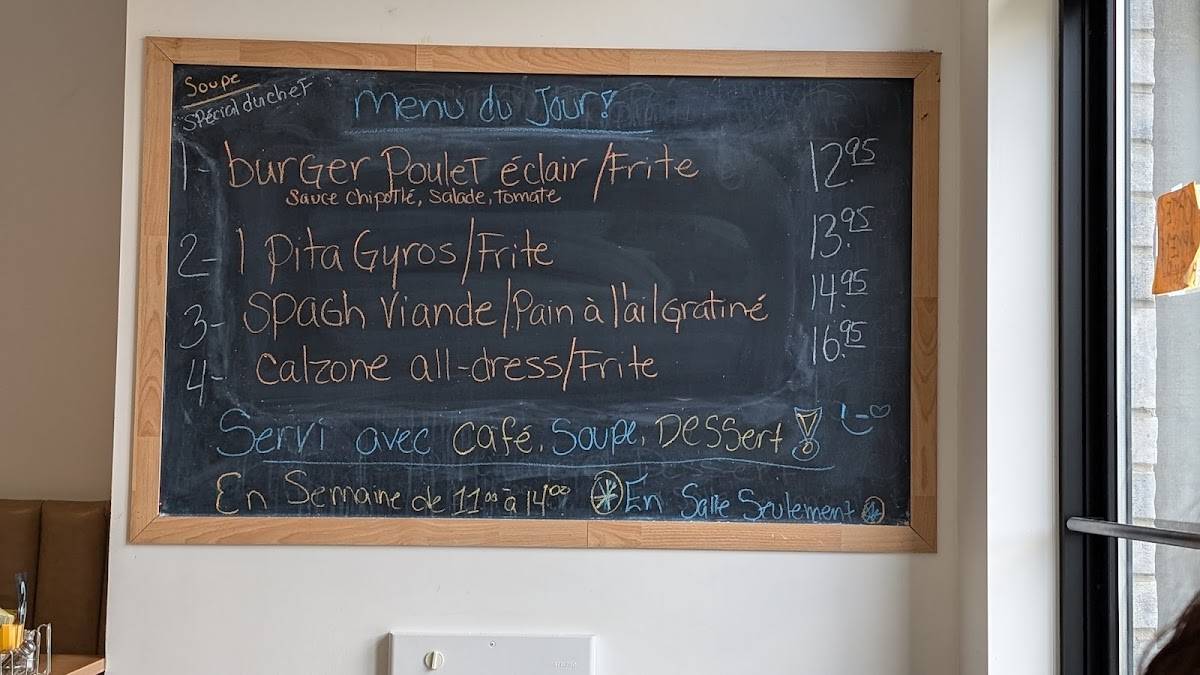 Soupe
Spécial du chef
Menu du Jour!
1- burger Poulet éclair/Frite 12.95
Sauce Chipotlé, Salade, tomate
2- 1 Pita Gyros/Frite 13.95
3- Spagh Viande/Pain à l'ail gratiné 14.95
4- Calzone all-dress/Frite 16.95
Servi avec Café, Soupe, Dessert!
En Semaine de 11.00 à 14.00 * En Salle Seulement *